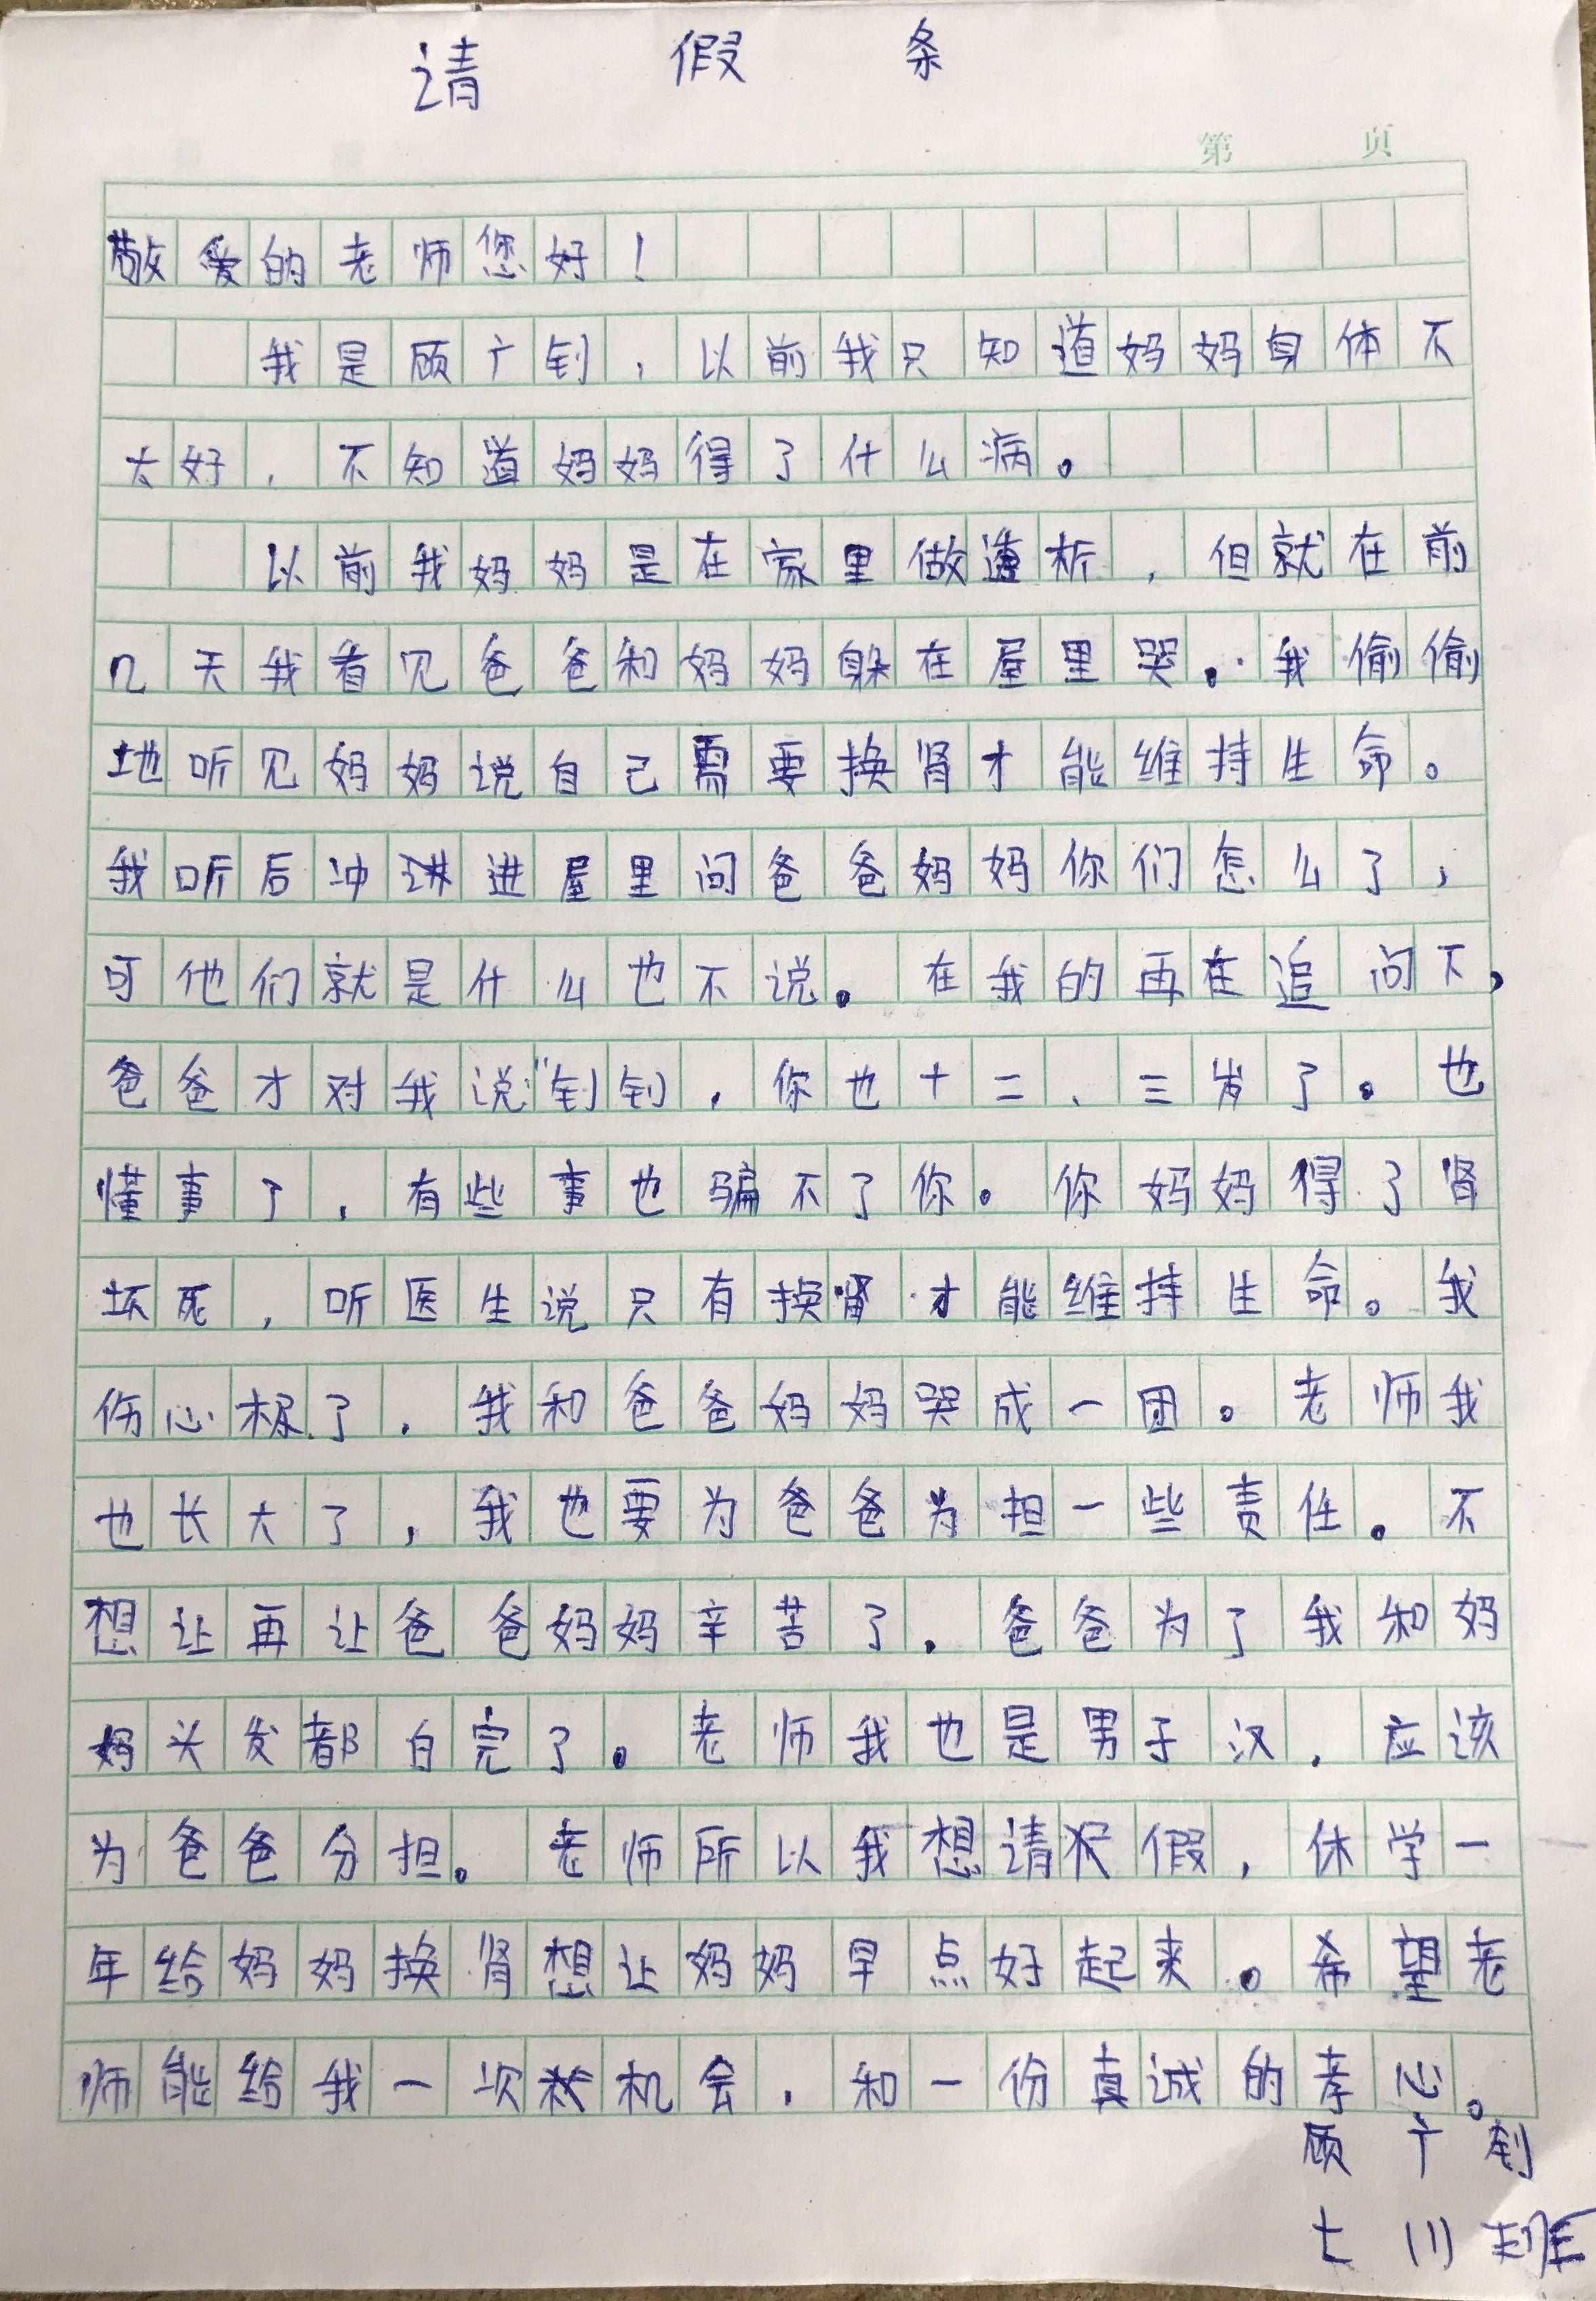 请假条
第 页
敬爱的老师您好！
我是顾广钊，以前我只知道妈妈身体不
太好，不知道妈妈得了什么病。
以前我妈妈是在家里做透析，但就在前
几天我看见爸爸和妈妈躲在屋里哭。我偷偷
地听见妈妈说自己需要换肾才能维持生命。
我听后冲进进屋里问爸爸妈妈你们怎么了，
可他们就是什么也不说。在我的再在追问下，
爸爸才对我说“钊钊，你也十二、三岁了。也
懂事了，有些事也骗不了你。你妈妈得了肾
坏死，听医生说只有换肾才能维持生命。我
伤心极了，我和爸爸妈妈哭成一团。老师我
也长大了，我也要为爸爸为担一些责任。不
想让再让爸爸妈妈辛苦了。爸爸为了我和妈
妈头发都白完了。老师我也是男子汉，应该
为爸爸分担。老师所以我想请假，休学一
年给妈妈换肾想让妈妈早点好起来。希望老
师能给我一次机会，和一份真诚的孝心。
顾广钊
七(1)班